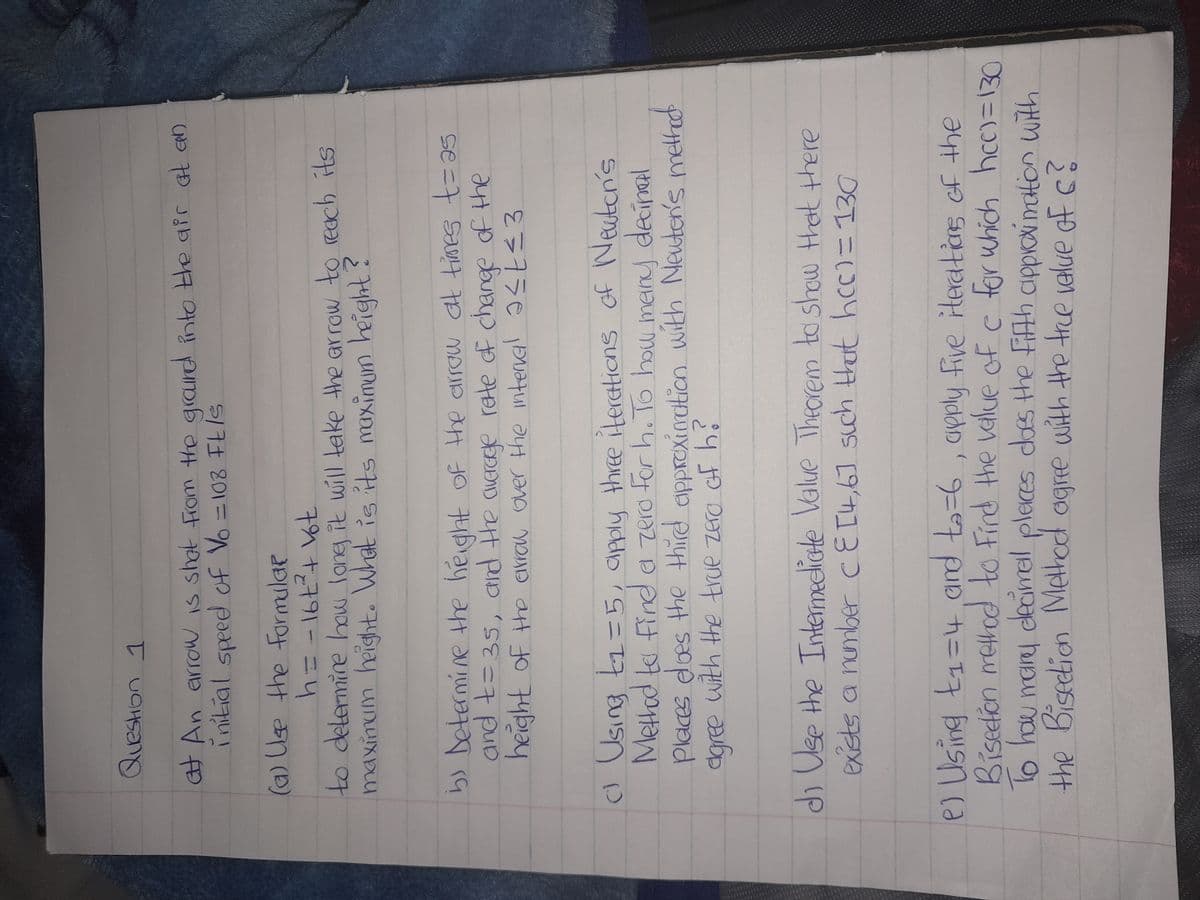 Question 1
at An arrow is shot from the ground into the air at an
initial speed of V₀ = 108 ft/s
(a) Use the formular
h = -16t² + V₀t
to determine how long it will take the arrow to reach its
maximum height. What is its maximum height?
b) Determine the height of the arrow at times t=2s
and t=3s, and the average rate of change of the
height of the arrow over the interval 2≤t≤3
c) Using t1=5, apply three iterations of Newton's
Method to find a zero for h. To how many decimal
places does the third approximation with Newton's method
agree with the true zero of h?
d) Use the Intermediate Value Theorem to show that there
exists a number c ∈ [4,6] such that h(c) = 130
e) Using t1=4 and t2=6, apply five iterations of the
Bisection method to find the value of c for which h(c)=130
To how many decimal places does the fifth approximation with
the Bisection Method agree with the true value of c?